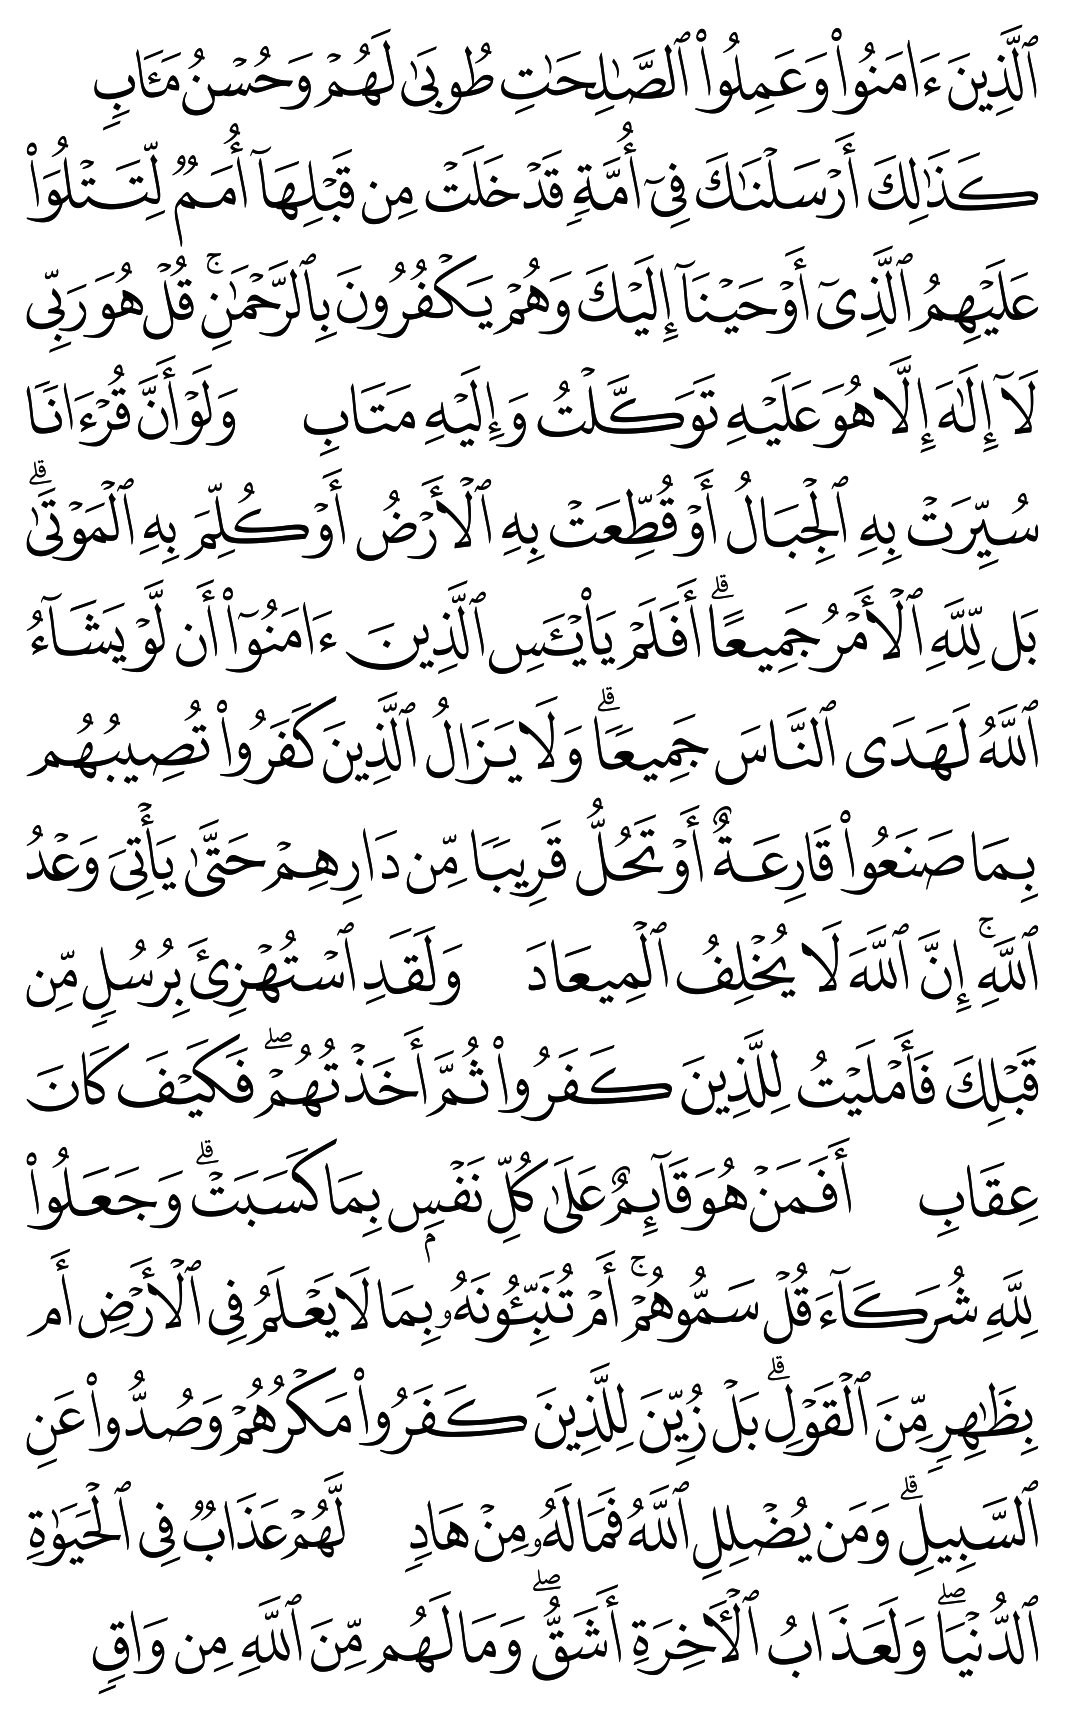 ٱلَّذِينَ ءَامَنُوا۟ وَعَمِلُوا۟ ٱلصَّـٰلِحَـٰتِ طُوبَىٰ لَهُمْ وَحُسْنُ مَـَٔابٍ
كَذَٰلِكَ أَرْسَلْنَـٰكَ فِىٓ أُمَّةٍ قَدْ خَلَتْ مِن قَبْلِهَآ أُمَمٌ لِّتَتْلُوَا۟
عَلَيْهِمُ ٱلَّذِىٓ أَوْحَيْنَآ إِلَيْكَ وَهُمْ يَكْفُرُونَ بِٱلرَّحْمَـٰنِ ۚ قُلْ هُوَ رَبِّى
لَآ إِلَـٰهَ إِلَّا هُوَ عَلَيْهِ تَوَكَّلْتُ وَإِلَيْهِ مَتَابِ وَلَوْ أَنَّ قُرْءَانًا
سُيِّرَتْ بِهِ ٱلْجِبَالُ أَوْ قُطِّعَتْ بِهِ ٱلْأَرْضُ أَوْ كُلِّمَ بِهِ ٱلْمَوْتَىٰ ۗ
بَل لِّلَّهِ ٱلْأَمْرُ جَمِيعًا ۗ أَفَلَمْ يَا۟يْـَٔسِ ٱلَّذِينَ ءَامَنُوٓا۟ أَن لَّوْ يَشَآءُ
ٱللَّهُ لَهَدَى ٱلنَّاسَ جَمِيعًا ۗ وَلَا يَزَالُ ٱلَّذِينَ كَفَرُوا۟ تُصِيبُهُم
بِمَا صَنَعُوا۟ قَارِعَةٌ أَوْ تَحُلُّ قَرِيبًا مِّن دَارِهِمْ حَتَّىٰ يَأْتِىَ وَعْدُ
ٱللَّهِ ۚ إِنَّ ٱللَّهَ لَا يُخْلِفُ ٱلْمِيعَادَ وَلَقَدِ ٱسْتُهْزِئَ بِرُسُلٍ مِّن
قَبْلِكَ فَأَمْلَيْتُ لِلَّذِينَ كَفَرُوا۟ ثُمَّ أَخَذْتُهُمْ ۖ فَكَيْفَ كَانَ
عِقَابِ أَفَمَنْ هُوَ قَآئِمٌ عَلَىٰ كُلِّ نَفْسٍۭ بِمَا كَسَبَتْ ۗ وَجَعَلُوا۟
لِلَّهِ شُرَكَآءَ قُلْ سَمُّوهُمْ ۚ أَمْ تُنَبِّـُٔونَهُۥ بِمَا لَا يَعْلَمُ فِى ٱلْأَرْضِ أَم
بِظَـٰهِرٍ مِّنَ ٱلْقَوْلِ ۗ بَلْ زُيِّنَ لِلَّذِينَ كَفَرُوا۟ مَكْرُهُمْ وَصُدُّوا۟ عَنِ
ٱلسَّبِيلِ ۗ وَمَن يُضْلِلِ ٱللَّهُ فَمَا لَهُۥ مِنْ هَادٍ لَّهُمْ عَذَابٌ فِى ٱلْحَيَوٰةِ
ٱلدُّنْيَا ۖ وَلَعَذَابُ ٱلْـَٔاخِرَةِ أَشَقُّ ۖ وَمَا لَهُم مِّنَ ٱللَّهِ مِن وَاقٍ